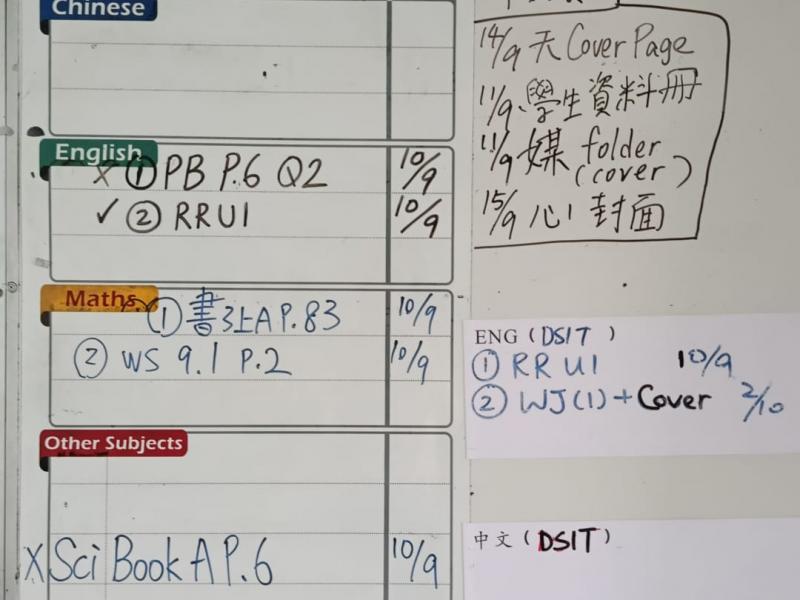 Chinese
English
X ① PB P.6 Q2 10/9
✓ ② RRU1 10/9
Maths
① 書3上A P.83 10/9
② WS 9.1 P.2 10/9
Other Subjects
X Sci Book A P.6 10/9
14/9 天 Cover Page
11/9 學生資料冊
11/9 媒 folder
(cover)
15/9 心1 封面
ENG (DSIT)
① RR U1 10/9
② WJ(1)+Cover 2/10
中文 (DSIT)